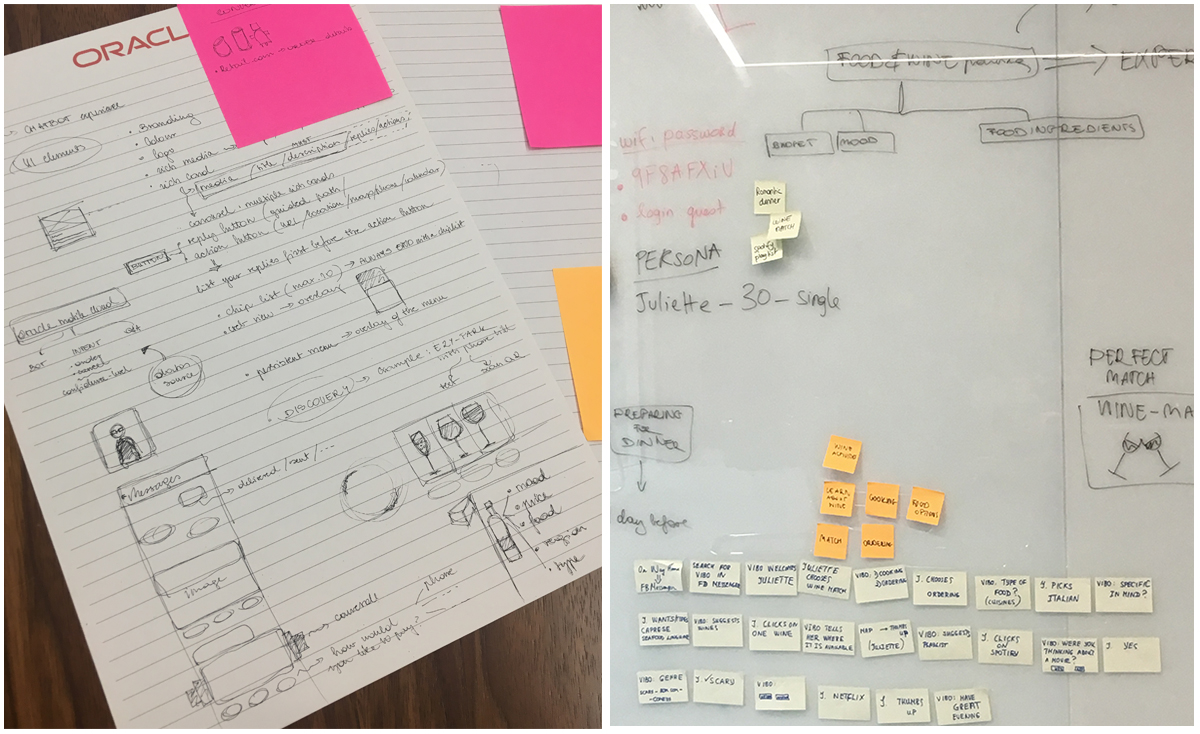 ORACL
CHATBOT experience
UI elements
• Branding
• Colour
• logo
• rich media
• rich card
media / title / description / replies/actions
carousel · multiple rich cards
reply button (guided path)
action button (URL/location/map/phone/calendar)
BUTTON
list your replies first before the action button
• chip list (max. 10) → ALWAYS END with a chip list
• web view → overlay
• persistent menu → overlay of the menu
oracle mobile cloud
BOT
INTENT
confidence level
source
DISCOVERY → example: EZY-PARK
text
scan QR
Messages
→ delivered / sent / ...
Image
• mood
• price
• food
• region
• type
phone
carousel
how would
you like to pay?
FOOD & WINE pairing
EXPER
BUDGET
MOOD
FOOD INGREDIENTS
wifi password
• 9F8AFXiV
• login guest
Romantic
dinner
WINE
MATCH
spotify
playlist
PERSONA
Juliette - 30 - single
PERFECT
MATCH
WINE-MA
PREPARING
FOR
DINNER
day before
WINE
LEARN
ABOUT
WINE
COOKING
FOOD
OPTIONS
MATCH
ORDERING
On Way Home
FB Messenger
SEARCH FOR
VIBO IN
FB MESSENGER
VIBO WELCOMES
JULIETTE
JULIETTE
CHOOSES
WINE MATCH
VIBO: COOKING
ORDERING
J. CHOOSES
ORDERING
VIBO: TYPE OF
FOOD?
(CUISINES)
J. PICKS
ITALIAN
VIBO: SPECIFIC
IN MIND?
J. WANTS
CAPRESE
SEAFOOD LINGUINE
VIBO: SUGGESTS
WINES
J. CLICKS ON
ONE WINE
VIBO TELLS
HER WHERE
IT IS AVAILABLE
MAP → THUMBS
UP
(JULIETTE)
VIBO: SUGGESTS
PLAYLIST
J. CLICKS
ON
SPOTIFY
VIBO: WERE YOU
THINKING ABOUT
A MOVIE?
J. YES
VIBO: GENRE
SCARY - ROM COM -
- COMEDY
J. ✓ SCARY
VIBO:
J. NETFLIX
J. THUMBS
UP
VIBO: HAVE
GREAT
EVENING